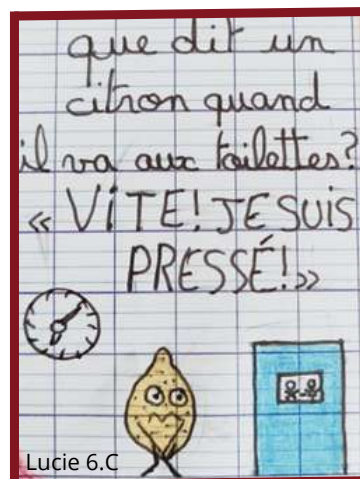 que dit un
citron quand
il va aux toilettes?
« VITE! JE SUIS
PRESSÉ! »
Lucie 6.C